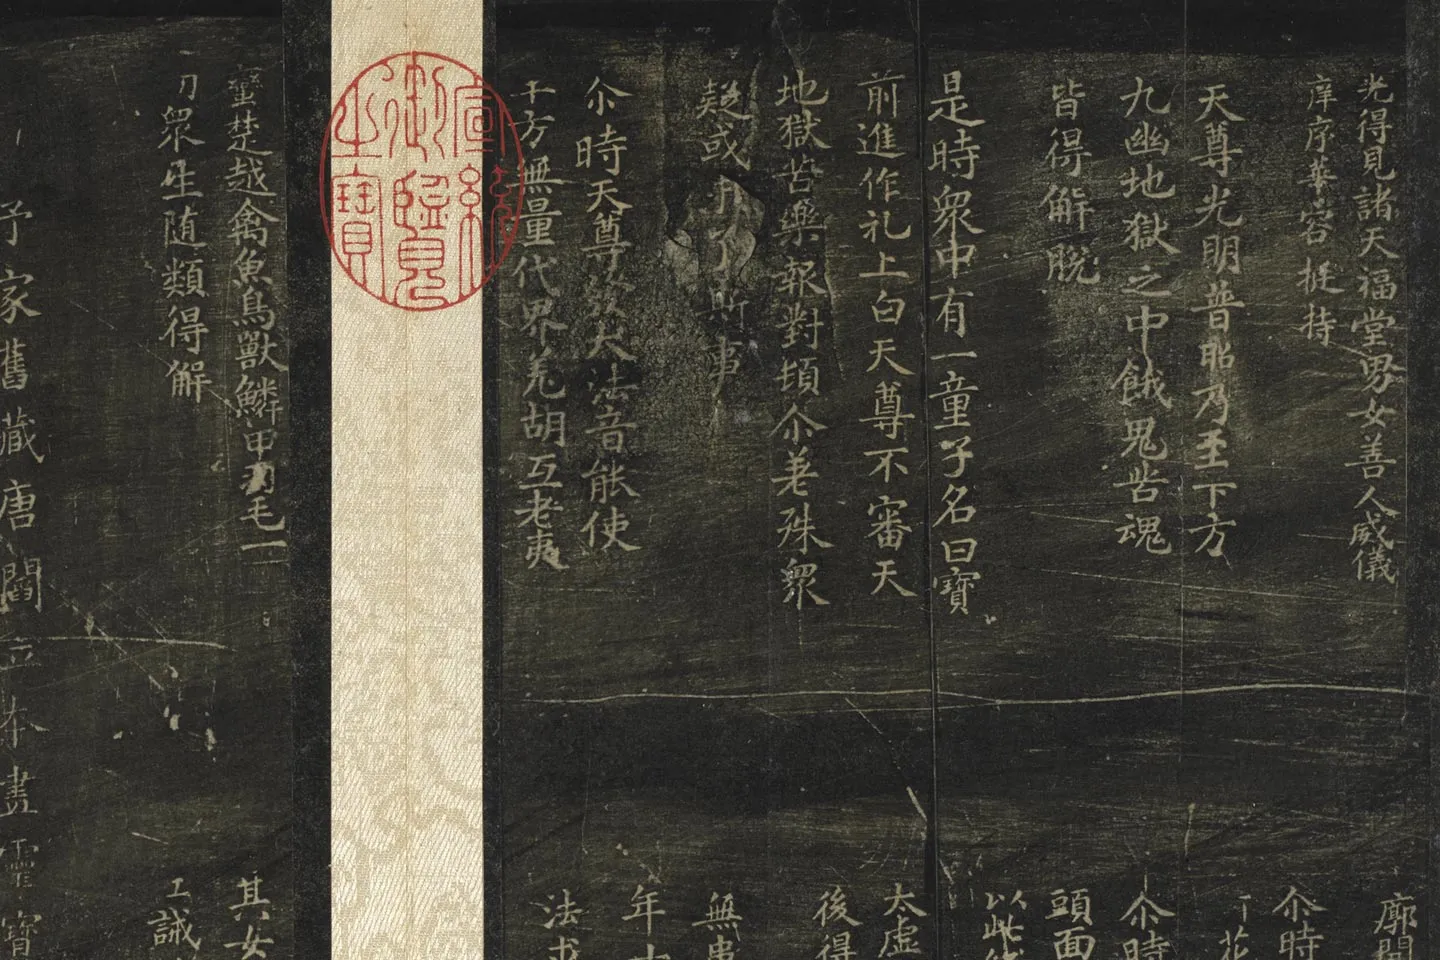 光得見諸天福堂男女善人威儀
庠序華容挺持
天尊光明普昭乃至下方
九幽地獄之中餓鬼苦魂
皆得解脫
是時眾中有一童子名曰寶
前進作礼上白天尊不審天
地獄苦樂報對頓尒差殊眾
疑或
所事
尒時天尊發大法音能使
十方無量代界羌胡互老夷
宣統御覽之寶
蠻楚越禽魚鳥獸鱗甲羽毛一
切眾生随類得解
予家舊藏唐閻立本畫靈寶
廓開
尒時
花
尒時
頭面
以此
大虛
後得
無
年
法
其女
誠